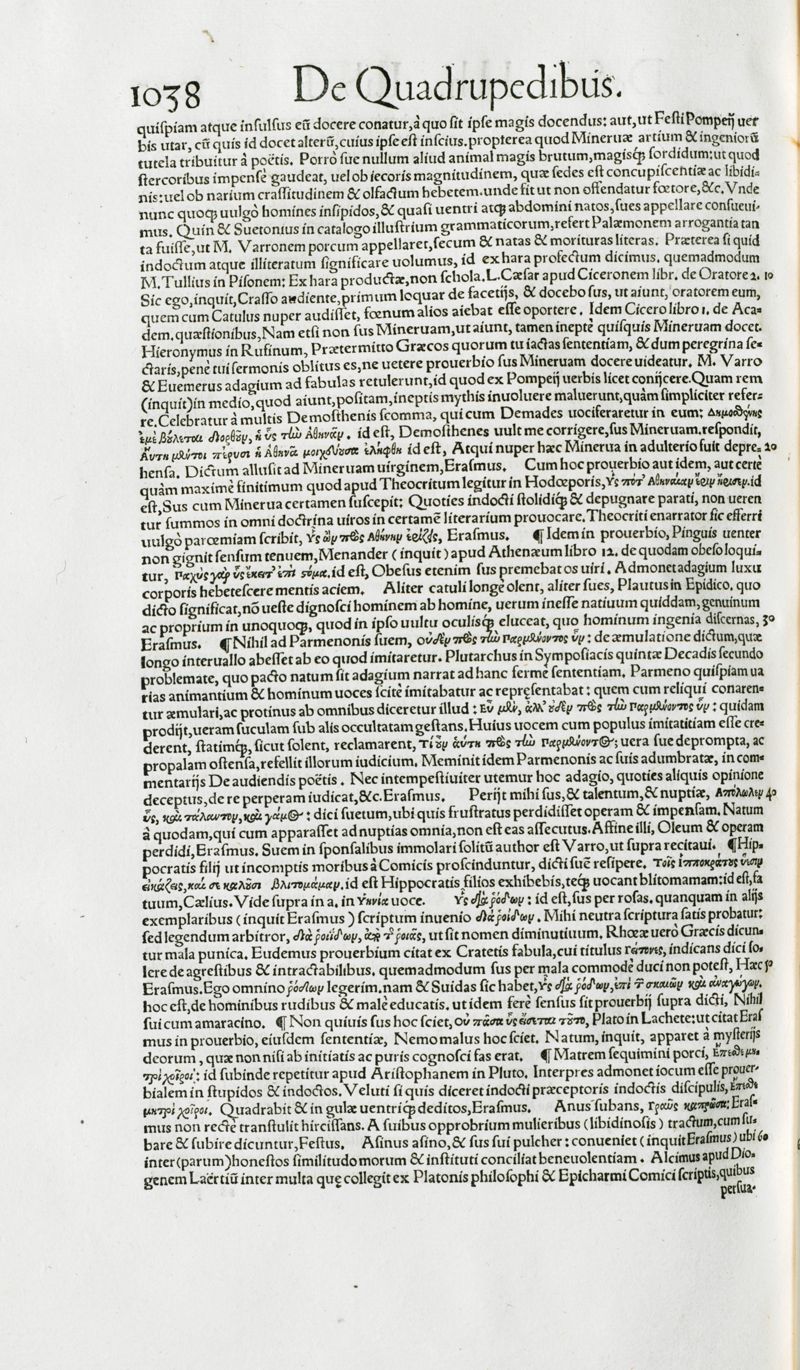 1038 De Quadrupedibus.
quiſpiam atque inſulſus eū docere conatur, à quo ſit ipſe magis docendus: aut, ut Feſti Pompeij uer
bis utar, cū quis id docet alterū, cuius ipſe eſt inſcius. propterea quod Mineruæ artium & ingeniorū
tutela tribuitur à poëtis. Porrò ſue nullum aliud animal magis brutum, magisq́ꝫ ſordidum: ut quod
ſtercoribus impenſè gaudeat, uel ob iecoris magnitudinem, quæ ſedes eſt concupiſcentiæ ac libidi-
nis: uel ob narium craſſitudinem & olfactum hebetem. unde fit ut non offendatur fœtore, &c. Vnde
nunc quoqꝫ uulgò homines inſipidos, & quaſi uentri atqꝫ abdomini natos, ſues appellare conſueui-
mus. Quin & Suetonius in catalogo illuſtrium grammaticorum, refert Palæmonem arrogantia tan
ta fuiſſe, ut M. Varronem porcum appellaret, ſecum & natas & morituras literas. Præterea ſi quid
indoctum atque illiteratum ſignificare uolumus, id ex hara profectum dicimus. quemadmodum
M. Tullius in Piſonem: Ex hara productæ, non ſchola. L. Cæſar apud Ciceronem libr. de Oratore 2. 10
Sic ego, inquit, Craſſo audiente, primum loquar de facetijs, & docebo ſus, ut aiunt, oratorem eum,
quem cum Catulus nuper audiſſet, fœnum alios aiebat eſſe oportere. Idem Cicero libro 1. de Aca-
dem. quæſtionibus, Nam etſi non ſus Mineruam, ut aiunt, tamen ineptè quiſquis Mineruam docet.
Hieronymus in Rufinum, Prætermitto Græcos quorum tu iactas ſententiam, & dum peregrina ſe-
ctaris, penè tui ſermonis oblitus es, ne uetere prouerbio ſus Mineruam docere uideatur. M. Varro
& Euemerus adagium ad fabulas retulerunt, id quod ex Pompeij uerbis licet conijcere. Quam rem
(inquit) in medio, quod aiunt, poſitam, ineptis mythis inuoluere maluerunt, quàm ſimpliciter refer-
re. Celebratur à multis Demoſthenis ſcomma, qui cum Demades uociferaretur in eum: Δημοσθένης
ἐμὲ βούλεται διορθοῦν, ἡ ὗς τὴν Ἀθηνᾶν. id eſt, Demoſthenes uult me corrigere, ſus Mineruam. reſpondit,
Αὕτη μέντοι πέρυσι ἡ Ἀθηνᾶ μοιχεύουσα ἐλήφθη id eſt, Atqui nuper hæc Minerua in adulterio fuit depre- 20
henſa. Dictum alluſit ad Mineruam uirginem, Eraſmus. Cum hoc prouerbio aut idem, aut certè
quàm maximè finitimum quod apud Theocritum legitur in Hodœporis, Ὗς ποτ' Ἀθηναίαν ἔριν ἤρισεν. id
eſt, Sus cum Minerua certamen ſuſcepit: Quoties indocti ſtolidiq́ꝫ & depugnare parati, non ueren
tur ſummos in omni doctrina uiros in certamē literarium prouocare. Theocriti enarrator ſic efferri
uulgò parœmiam ſcribit, Ὗς ὢν πρὸς Ἀθήνην ἐρίζεις, Eraſmus. ¶ Idem in prouerbio, Pinguis uenter
non gignit ſenſum tenuem, Menander (inquit) apud Athenæum libro 12. de quodam obeſo loqui-
tur, Παχὺς γὰρ ὗς ἔκειτ' ἐπὶ στόμα. id eſt, Obeſus etenim ſus premebat os uiri. Admonet adagium luxu
corporis hebeteſcere mentis aciem. Aliter catuli longè olent, aliter ſues, Plautus in Epidico. quo
dicto ſignificat, nō ueſte dignoſci hominem ab homine, uerum ineſſe natiuum quiddam, genuinum
ac proprium in unoquoqꝫ, quod in ipſo uultu oculisq́ꝫ eluceat, quo hominum ingenia diſcernas, 30
Eraſmus. ¶ Nihil ad Parmenonis ſuem, οὐδὲν πρὸς τὴν Παρμένοντος ὗν: de æmulatione dictum, quæ
longo interuallo abeſſet ab eo quod imitaretur. Plutarchus in Sympoſiacis quintæ Decadis ſecundo
problemate, quo pacto natum ſit adagium narrat ad hanc fermè ſententiam. Parmeno quiſpiam ua
rias animantium & hominum uoces ſcitè imitabatur ac repręſentabat: quem cum reliqui conaren-
tur æmulari, ac protinus ab omnibus diceretur illud: Εὖ μέν, ἀλλ' οὐδὲν πρὸς τὴν Παρμένοντος ὗν: quidam
prodijt, ueram ſuculam ſub alis occultatam geſtans. Huius uocem cum populus imitatitiam eſſe cre-
derent, ſtatimq́ꝫ, ſicut ſolent, reclamarent, Τί οὖν αὕτη πρὸς τὴν Παρμένοντος; uera ſue deprompta, ac
propalam oſtenſa, refellit illorum iudicium. Meminit idem Parmenonis ac ſuis adumbratæ, in com-
mentarijs De audiendis poëtis. Nec intempeſtiuiter utemur hoc adagio, quoties aliquis opinione
deceptus, de re perperam iudicat, &c. Eraſmus. Perijt mihi ſus, & talentum, & nuptiæ, Ἀπόλωλεν 40
ὗς, καὶ τάλαντον, καὶ γάμος: dici ſuetum, ubi quis fruſtratus perdidiſſet operam & impenſam. Natum
à quodam, qui cum apparaſſet ad nuptias omnia, non eſt eas aſſecutus. Affine illi, Oleum & operam
perdidi, Eraſmus. Suem in ſponſalibus immolari ſolitū author eſt Varro, ut ſupra recitaui. ¶ Hip-
pocratis filij ut incomptis moribus à Comicis proſcinduntur, dicti ſuē reſipere. Τοῖς Ἱπποκράτους ὑέσιν
εἰκάζεις, καί σε καλοῦσι βλιτομάμαν. id eſt Hippocratis filios exhibebis, teqꝫ uocant blitomamam: id eſt, fa
tuum, Cælius. Vide ſupra in a, in Ὑηνία uoce. Ὗς διὰ ῥόδων: id eſt, ſus per roſas. quanquam in alijs
exemplaribus (inquit Eraſmus) ſcriptum inuenio διὰ ῥοίδων. Mihi neutra ſcriptura ſatis probatur:
ſed legendum arbitror, διὰ ῥοιΐδων, ἀπὸ τῆς ῥοιᾶς, ut ſit nomen diminutiuum. Rhoææ uerò Græcis dicun-
tur mala punica. Eudemus prouerbium citat ex Cratetis fabula, cui titulus γείτονες, indicans dici ſo-
lere de agreſtibus & intractabilibus. quemadmodum ſus per mala commodè duci non poteſt, Hæc 50
Eraſmus. Ego omnino ῥόδων legerim. nam & Suidas ſic habet, Ὗς διὰ ῥόδων, ἐπὶ τῶν σκαιῶν καὶ ἀναγώγων.
hoc eſt, de hominibus rudibus & malè educatis. ut idem ferè ſenſus ſit prouerbij ſupra dicti, Nihil
ſui cum amaracino. ¶ Non quiuis ſus hoc ſciet, οὐ πᾶσα ὗς εἴσεται τοῦτο, Plato in Lachete: ut citat Eraſ
mus in prouerbio, eiuſdem ſententiæ, Nemo malus hoc ſciet. Natum, inquit, apparet à myſterijs
deorum, quæ non niſi ab initiatis ac puris cognoſci fas erat. ¶ Matrem ſequimini porci, Ἕπεσθε μη-
τρὶ χοῖροι: id ſubinde repetitur apud Ariſtophanem in Pluto. Interpres admonet iocum eſſe prouer-
bialem in ſtupidos & indoctos. Veluti ſi quis diceret indocti præceptoris indoctis diſcipulis, ἕπεσθε
μητρὶ χοῖροι. Quadrabit & in gulæ uentriq́ꝫ deditos, Eraſmus. Anus ſubans, Γραῦς καπρῶσα: Eraſ-
mus non rectè tranſtulit hirciſſans. A ſuibus opprobrium mulieribus (libidinoſis) tractum, cum ſu-
bare & ſubire dicuntur, Feſtus. Aſinus aſino, & ſus ſui pulcher: conueniet (inquit Eraſmus) ubi 60
inter (parum) honeſtos ſimilitudo morum & inſtituti conciliat beneuolentiam. Alcimus apud Dio-
genem Laërtiū inter multa quę collegit ex Platonis philoſophi & Epicharmi Comici ſcriptis, quibus
perſua-